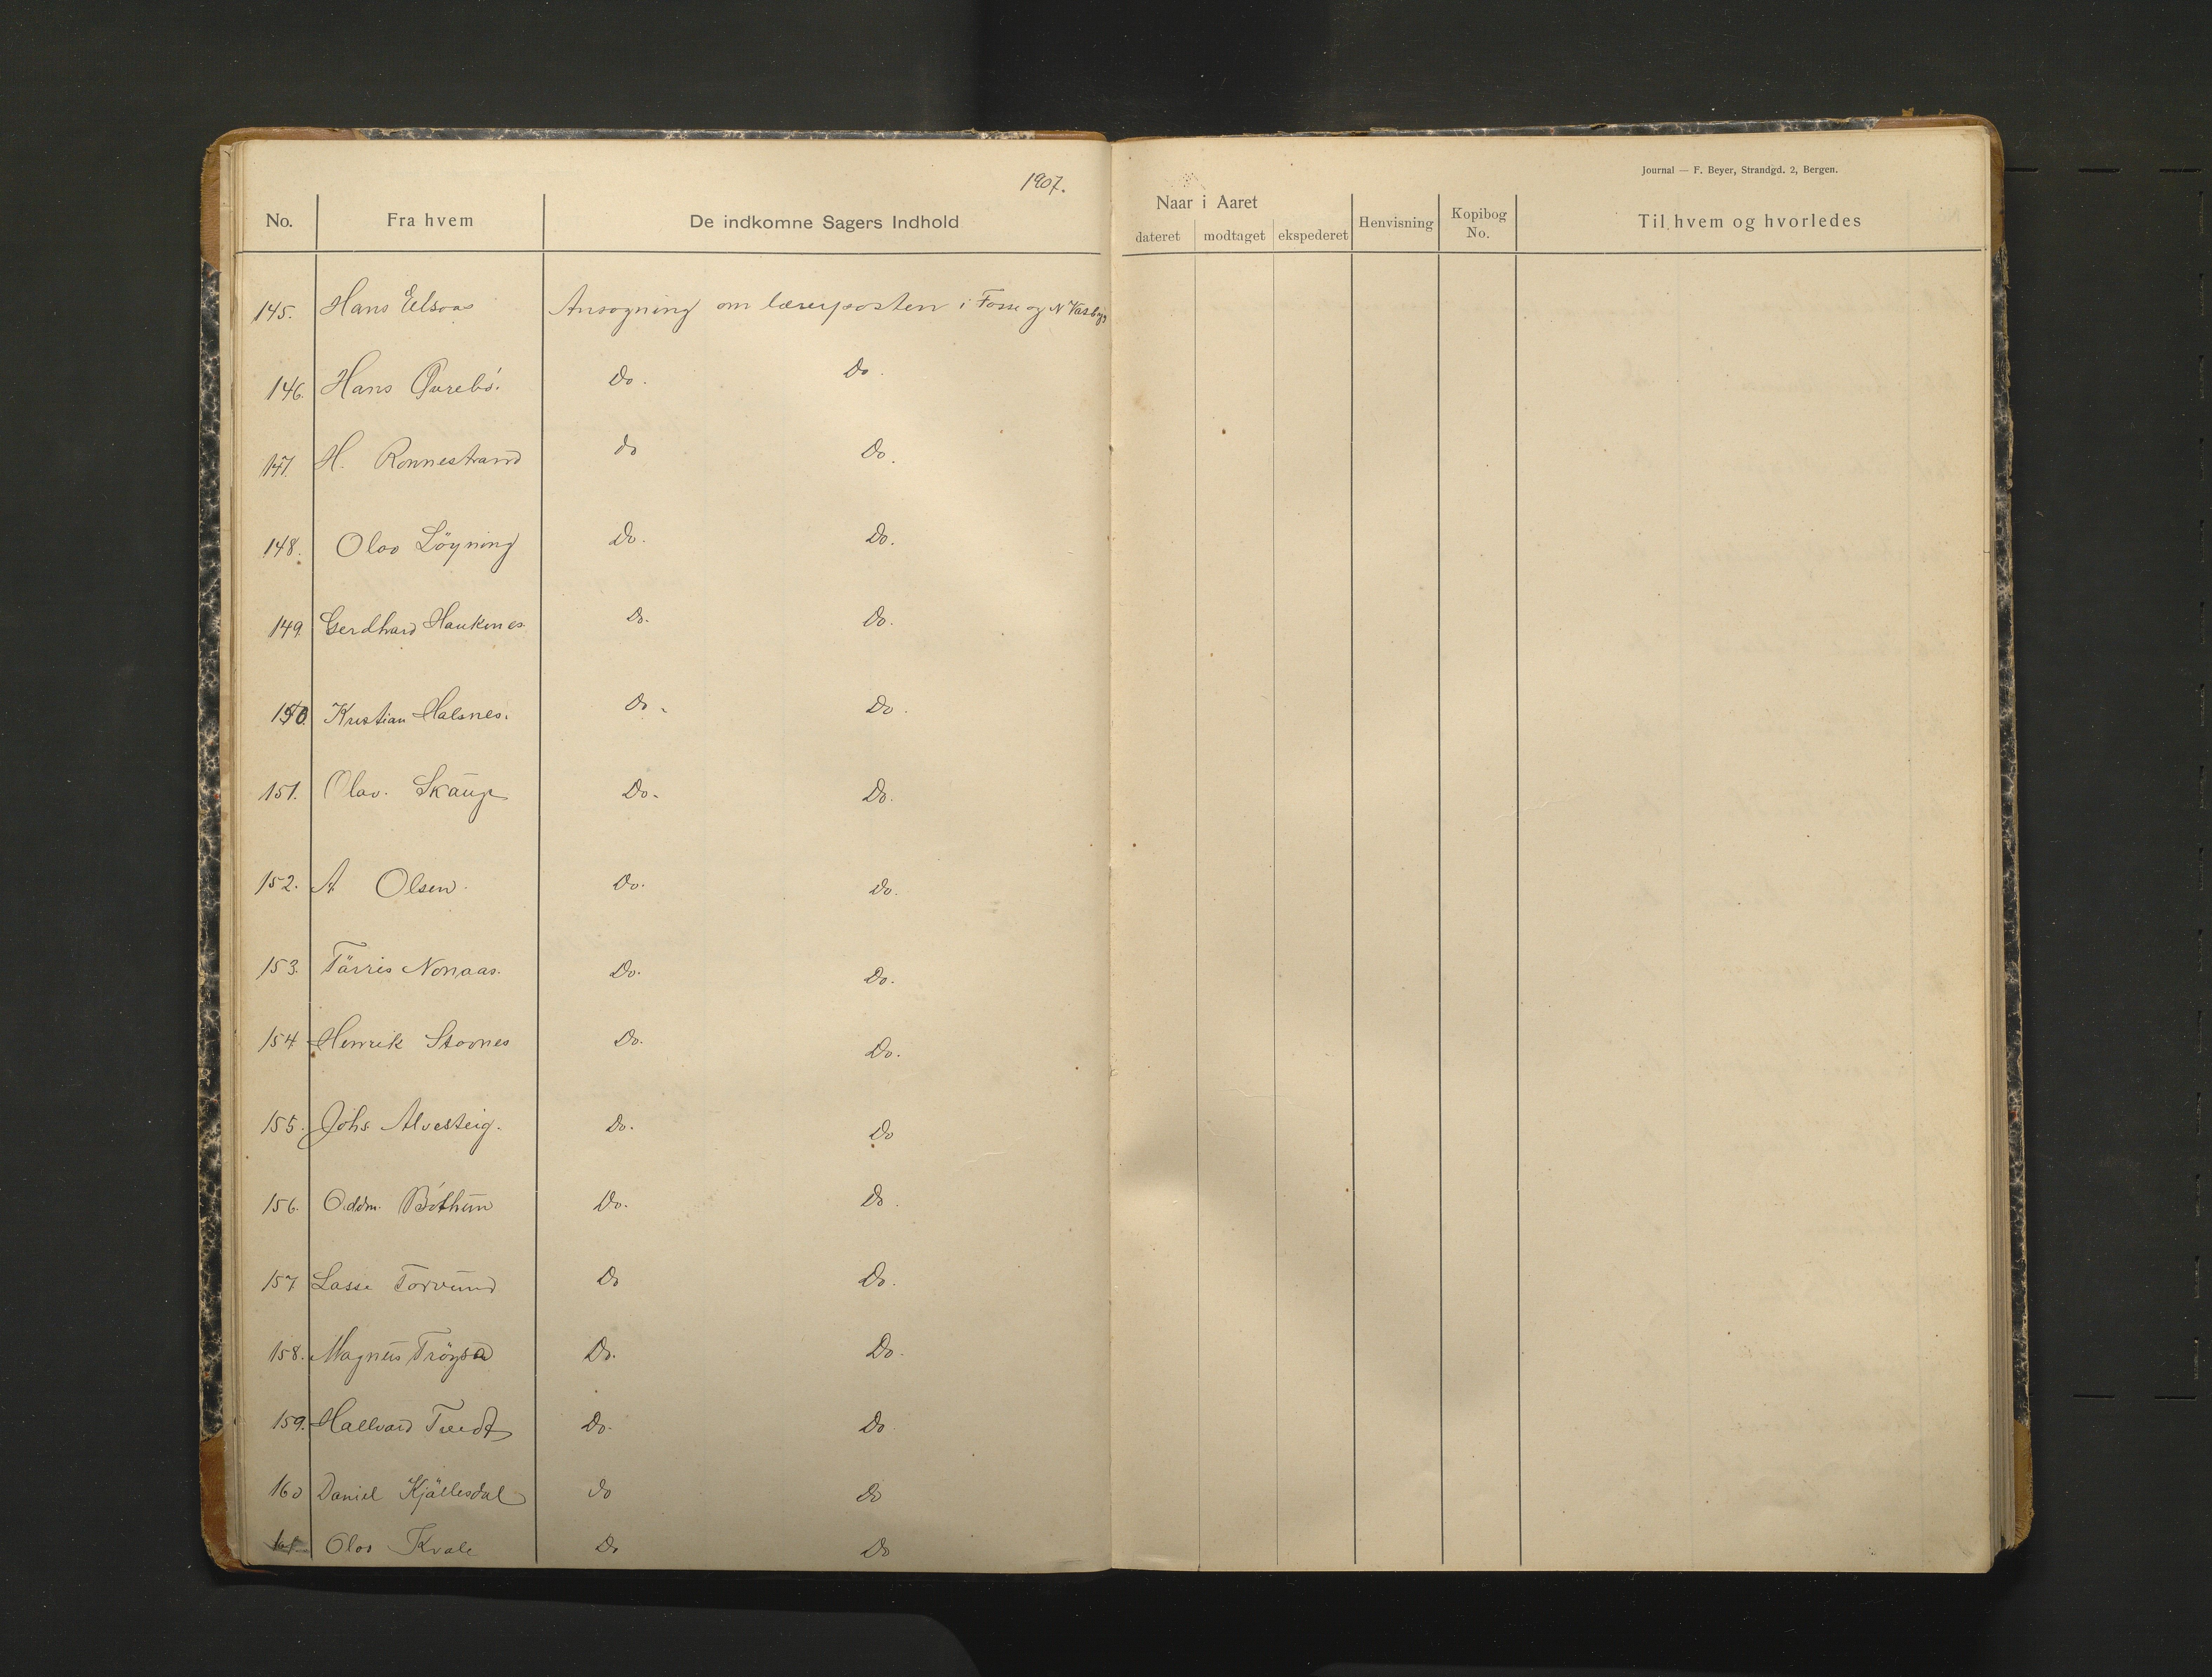 1907.
No. Fra hvem De indkomne Sagers Indhold
145. Hans Eelsaas Ansøgning om lærerposten i Fosse og N
146. Hans Øvrebö. Do. Do.
147. H. Ronnestrand do Do.
148. Olav Löyning Do. Do.
149 Gerdhard Haukenes Do. Do.
150. Kristian Halsnes. Do. Do.
151. Olav. Skaup Do. Do.
152. A Olsen. Do. Do.
153. Tärris Nonaas. Do. Do.
154 Henrik Stavnes Do. Do.
155. Johs Alvesteig. Do. Do
156. Oddm. Böthun Do. Do.
157 Lasse Torvund Do Do.
158. Magnus Do. Do.
159. Hallvard Tvedt Do. Do
160 Daniel Kjällesdal do Do
161. Olav Kvale Do Do
Journal — F. Beyer, Strandgd. 2, Bergen.
Naar i Aaret
dateret modtaget ekspederet Henvisning Kopibog No. Til hvem og hvorledes